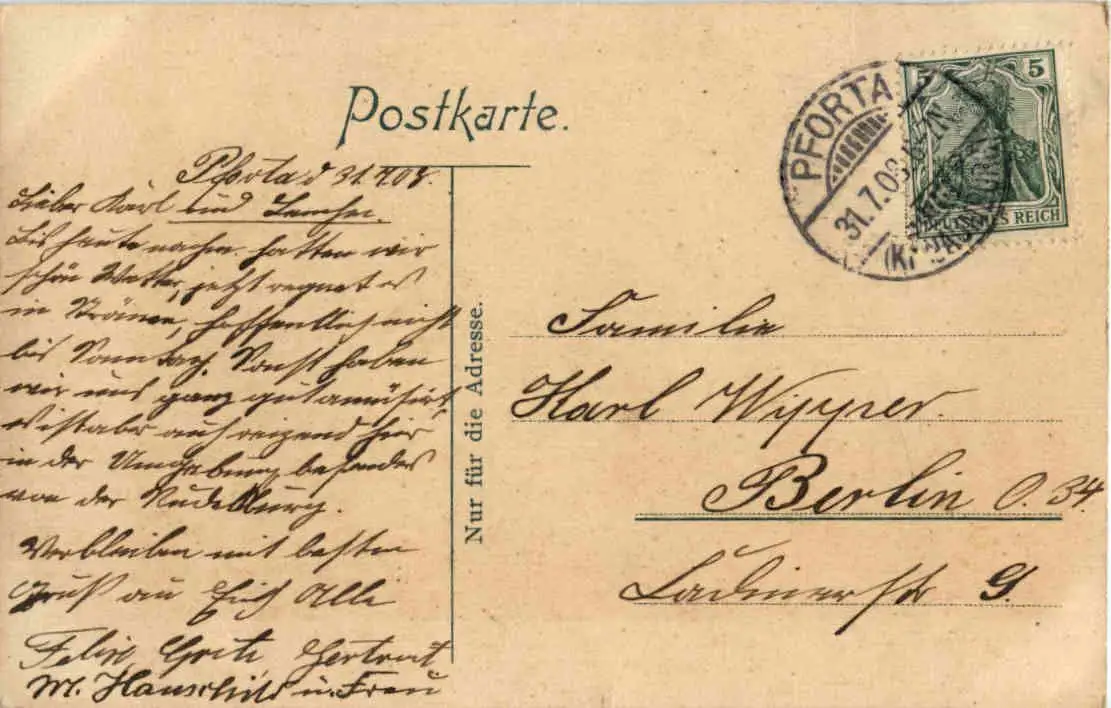 Postkarte.
Pforta d 31.7.08.
Lieber Karl und
Bis heute nachm. hatten wir
schön Wetter, jetzt regnet es
in Strömen, hoffentlich nicht
bis Sonntag. Sonst haben
wir uns ganz gut amüsirt,
es ist aber auch reizend hier
in der Umgebung besonders
von der Rudelsburg.
Verbleiben mit besten
Gruß an Euch Alle
Felix, Grete Gertrud
M. Hauschild u. Frau
Nur für die Adresse.
PFORTA
31.7.08
5 5
DEUTSCHES REICH
Familie
Karl Wipper.
Berlin O. 34.
str 9.